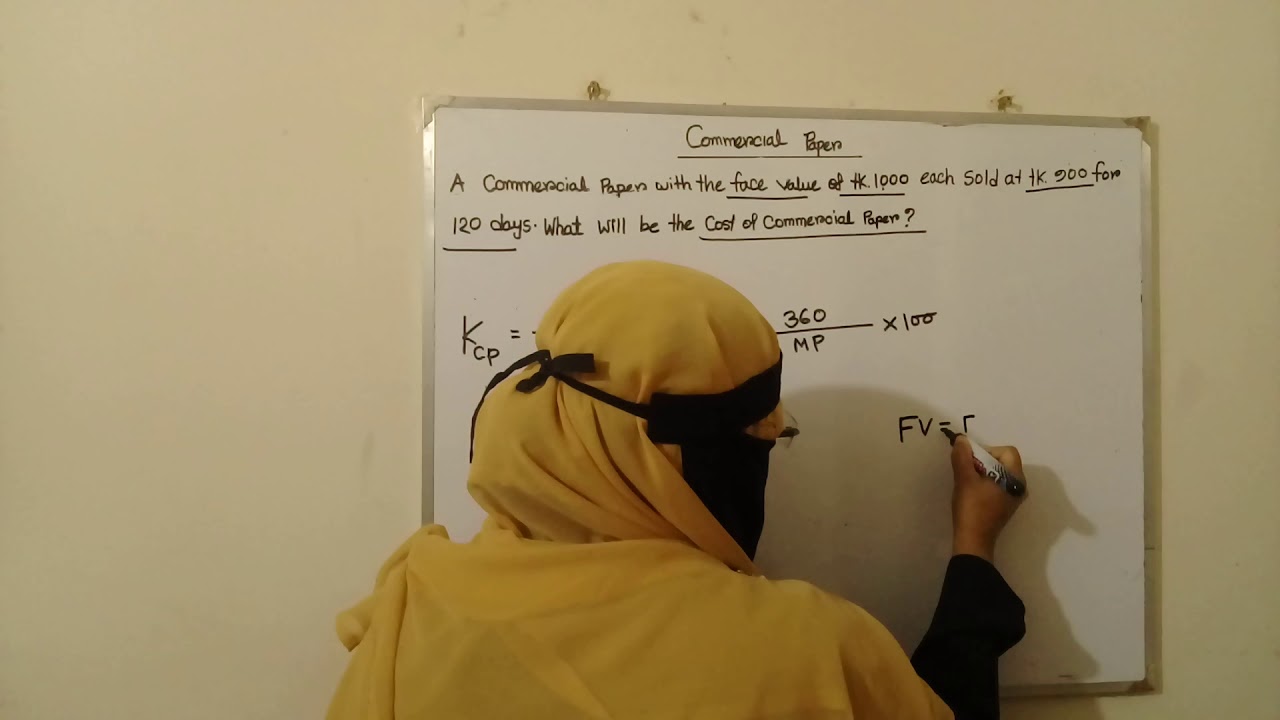 Commercial Paper
A Commercial Paper with the face value of tk.1000 each sold at tk. 900 for
120 days. What will be the Cost of Commercial Paper?
K CP = 360 / MP ×100
FV = F